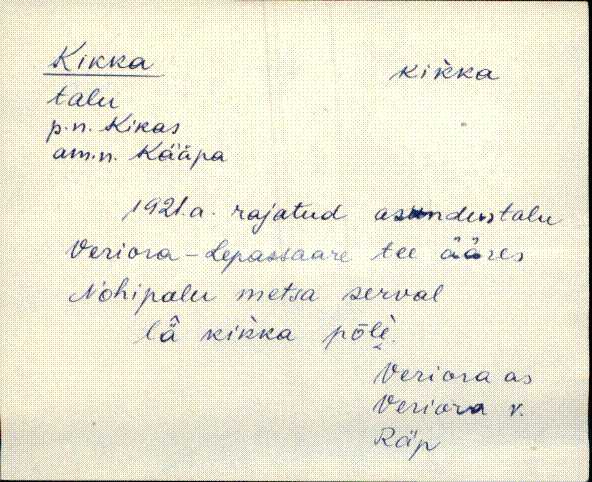 Kikka kik̀ka
talu
p.n. Kikas
am.n. Kääpa
1921.a. rajatud asundustalu
Veriora-Lepassaare tee ääres
Nohipalu metsa serval
lä̂ kik̀ka põlè̬
Veriora as
Veriora v.
Räp